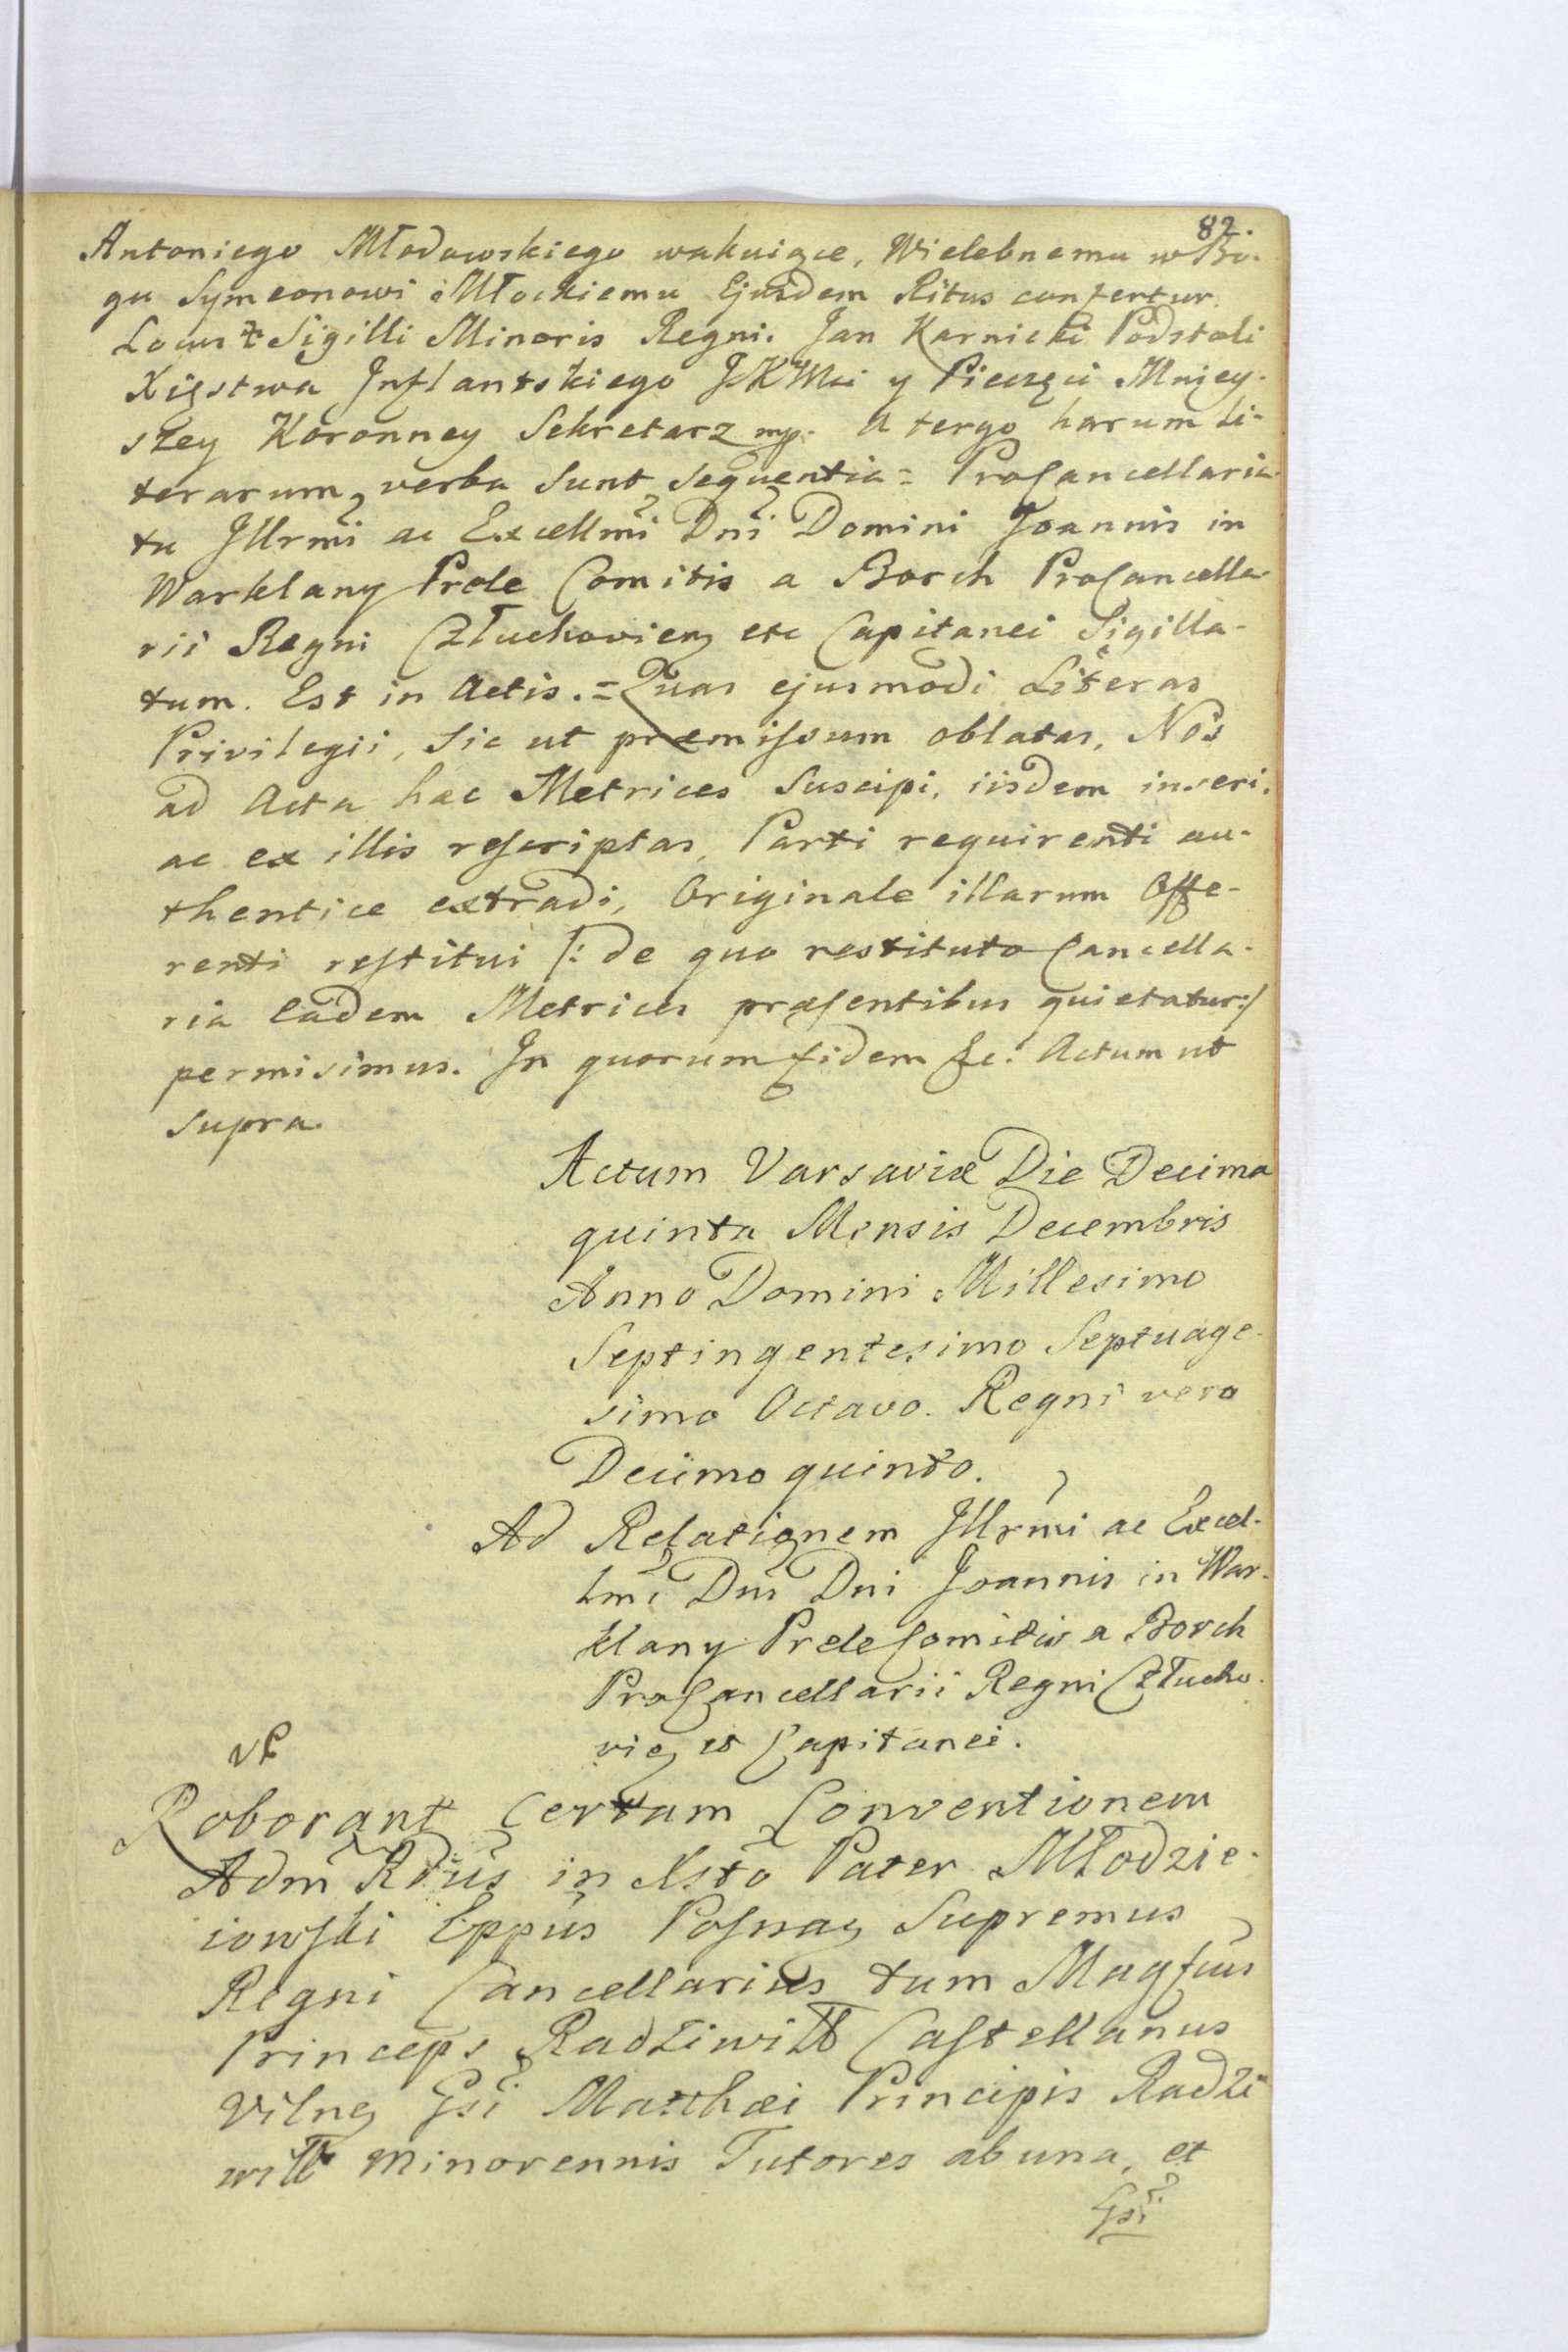 82.
Antoniego Młodowskiego wakuiące, Wielebnemu w Bo-
gu Symeonowi Młockiemu Ejusdem Ritus confertur.
Locus Sigilli Minoris Regni. Jan Karnicki Podstoli
Xięstwa Inflantskiego JKMci y Pieczęci Mniey-
szey Koronney Sekretarz mp. A tergo harum Li-
terarum verba sunt sequentia = ProCancellaria-
tu Illrmi ac Excellmi Dni Domini Joannis in
Warklany Prele Comitis a Borch ProCancella-
rii Regni Człuchovien etc Capitanei Sigilla-
tum. Est in Actis. = Quas ejusmodi Literas
Privilegii, sic ut præmissum oblatas, Nos
ad Acta hæc Metrices suscipi, iisdem inseri,
ac ex illis rescriptas, Parti requirenti au-
thentice extradi, Originale illarum Offe-
renti restitui /: de quo restituto Cancella-
ria Eadem Metrices præsentibus quietatur :/
permisimus. In quorum fidem &c. Actum ut
supra.
Actum Varsaviæ Die Decima
quinta Mensis Decembris
Anno Domini Millesimo
Septingentesimo Septuage-
simo Octavo. Regni vero
Decimo quinto.
Ad Relationem Illrmi ac Excel-
lmi Dni Dni Joannis in War-
klany Prele Comitis a Borch
ProCancellarii Regni Człucho-
vien et Capitanei.
Roborant certam Conventionem
Adm Rdus in Xsto Pater Młodzie-
iowski Eppus Posnan Supremus
Regni Cancellarius tum Magfcus
Princeps Radziwiłł Castellanus
Vilnen Gsi Matthæi Principis Radzi
wiłł minorennis Tutores ab una, et
Gsi